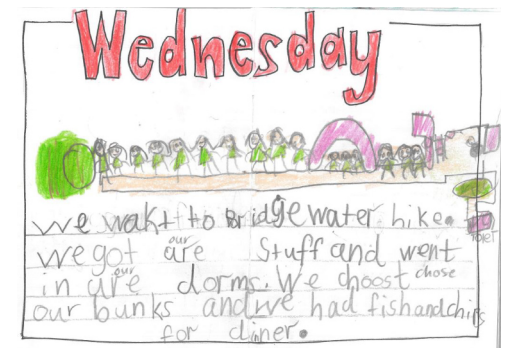 Wednesday
we wakt to Bridgewater hike.
toilet
our
we got are Stuff and went
our
in are dorms. We choost chose
our bunks and we had fish and chips
for diner.